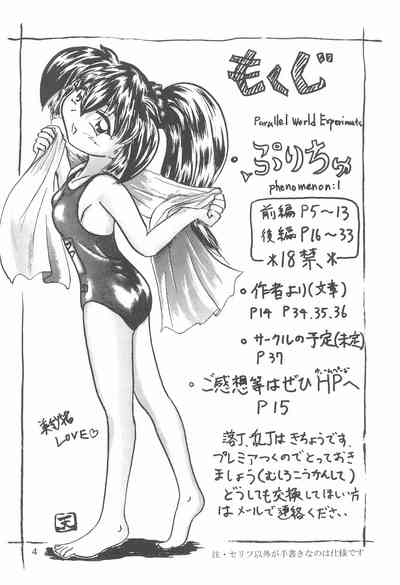 もくじ
Parallel World Experiments
ぷりちゅ
phenomenon:1
前編 P5～13
後編 P16～33
＊18禁、＊
・作者より(文章)
P14 P34.35.36
・サークルの予定(未定)
P37
・ご感想等はぜひHPへ
P15
落丁、乱丁はきちょうです、
プレミアつくのでとっておき
ましょう(むしろこうかんして)
どうしても交換してほしい方
はメールで連絡ください、
LOVE♡
4
注・セリフ以外が手書きなのは仕様です